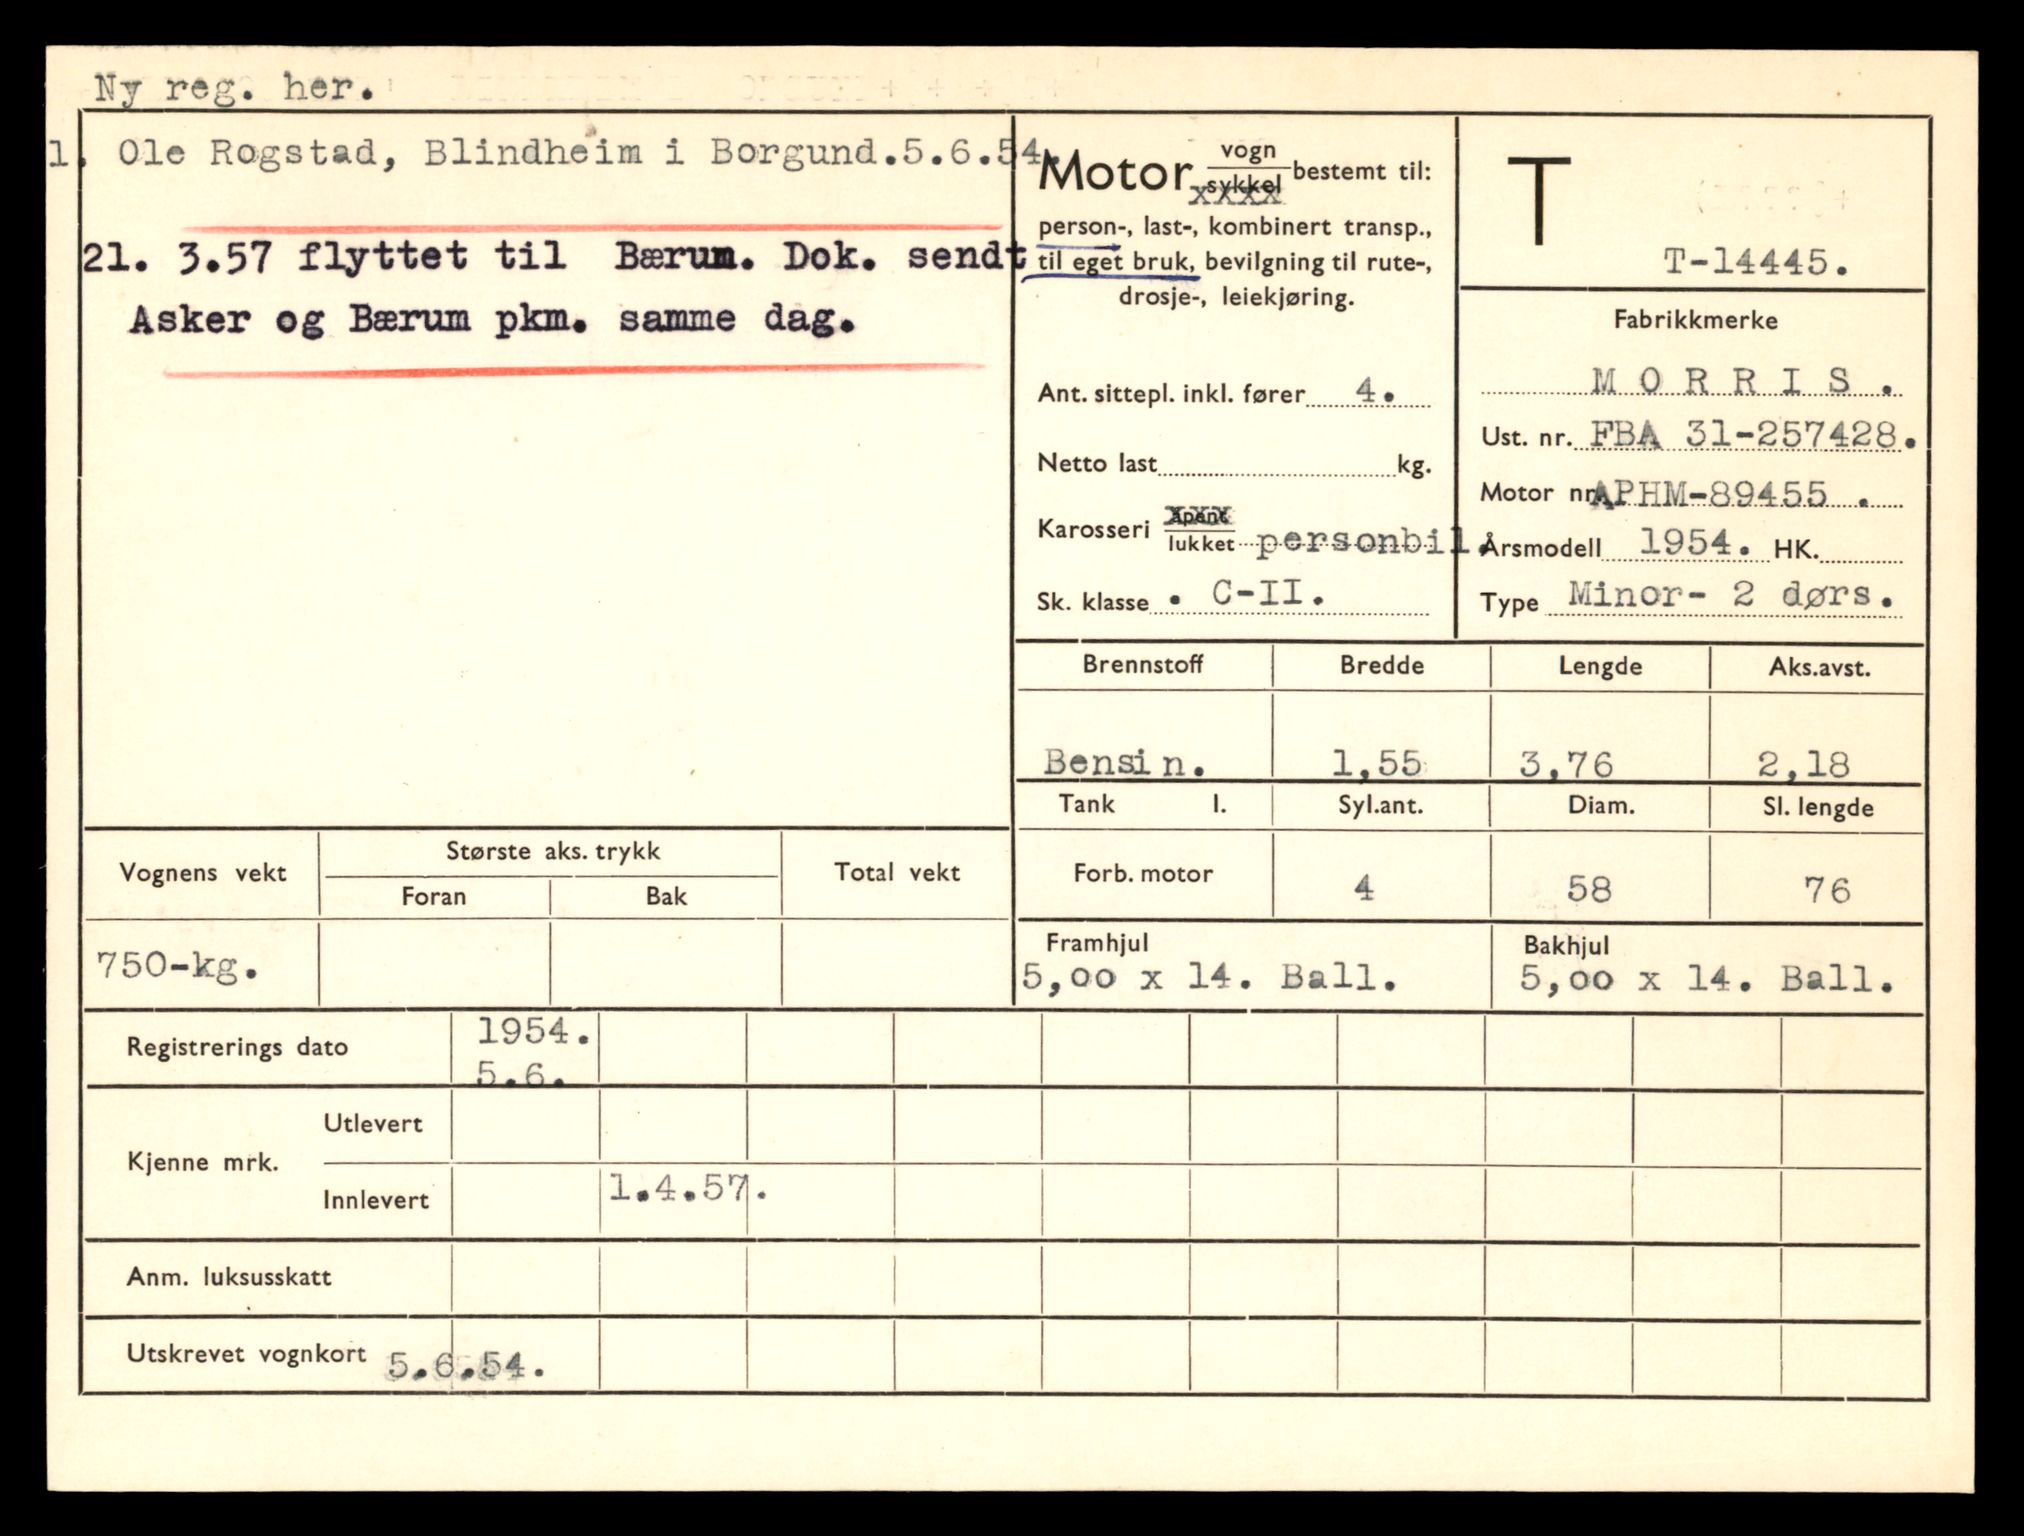 Ny reg. her.
1. Ole Rogstad, Blindheim i Borgund.5.6.54.
21. 3.57 flyttet til Bærum. Dok. sendt
Asker og Bærum pkm. samme dag.
Motor vogn/sykkel bestemt til:
xxxx
person-, last-, kombinert transp.,
til eget bruk, bevilgning til rute-,
drosje-, leiekjøring.
Ant. sittepl. inkl. fører 4.
Netto last kg.
Karosseri åpent/lukket personbil.
xxx
Sk. klasse . C-II.
T
T-14445.
Fabrikkmerke
M O R R I S .
Ust. nr. FBA 31-257428.
Motor nr. APHM-89455 .
Årsmodell 1954. HK.
Type Minor- 2 dørs.
Brennstoff Bredde Lengde Aks.avst.
Bensin. 1,55 3,76 2,18
Tank l. Syl.ant. Diam. Sl. lengde
Forb. motor 4 58 76
Framhjul Bakhjul
5,oo x 14. Ball. 5,oo x 14. Ball.
Vognens vekt Største aks. trykk Total vekt
Foran Bak
750-kg.
Registrerings dato 1954.
5.6.
Kjenne mrk. Utlevert
Innlevert 1.4.57.
Anm. luksusskatt
Utskrevet vognkort 5.6.54.